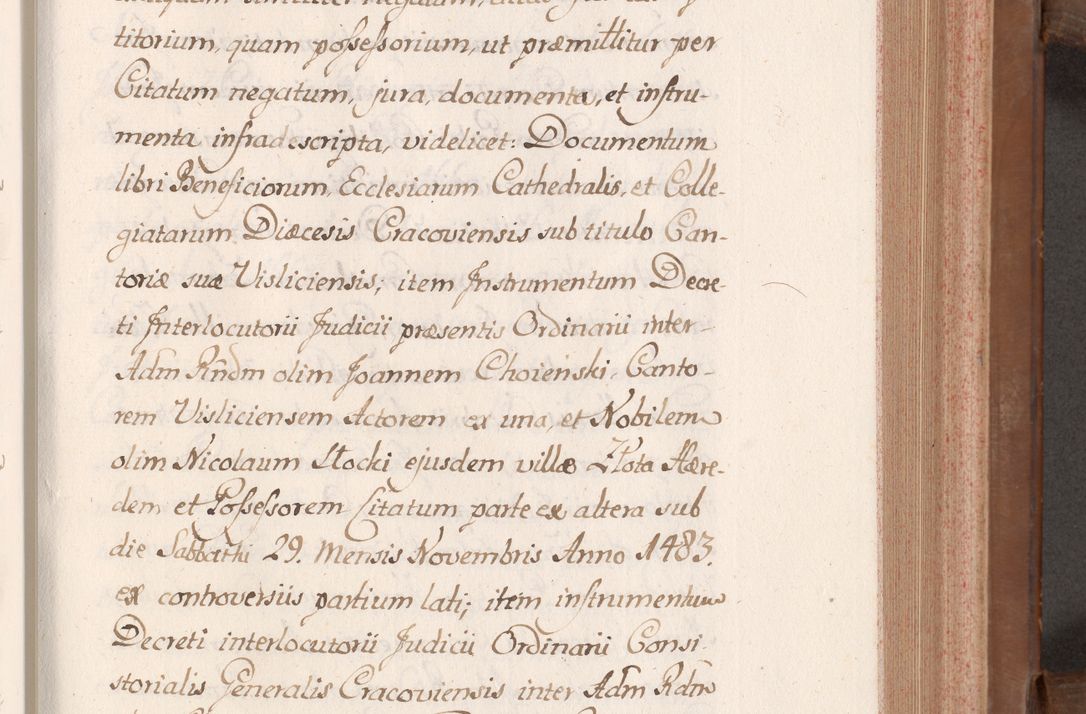 titorium, quam possessorium, ut præmittitur per
Citatum negatum, jura, documenta, et instru-
menta infradescripta, videlicet: Documentum
libri Beneficiorum, Ecclesiarum Cathedralis, et Colle-
giatarum Diæcesis Cracoviensis sub titulo Can-
toriæ suæ Visliciensis; item Instrumentum Decre-
ti Interlocutorii Judicii præsentis Ordinarii inter
Adm Rndm olim Joannem Choieński Canto-
rem Visliciensem Actorem ex una, et Nobilem
olim Nicolaum Złocki ejusdem villæ Złota Hære-
dem et Possessorem Citatum parte ex altera sub
die Sabbathi 29. Mensis Novembris Anno 1483.
ex controversiis partium lati; item instrumentum
Decreti interlocutorii Judicii Ordinarii Consi-
storialis Generalis Cracoviensis inter Adm Rdm